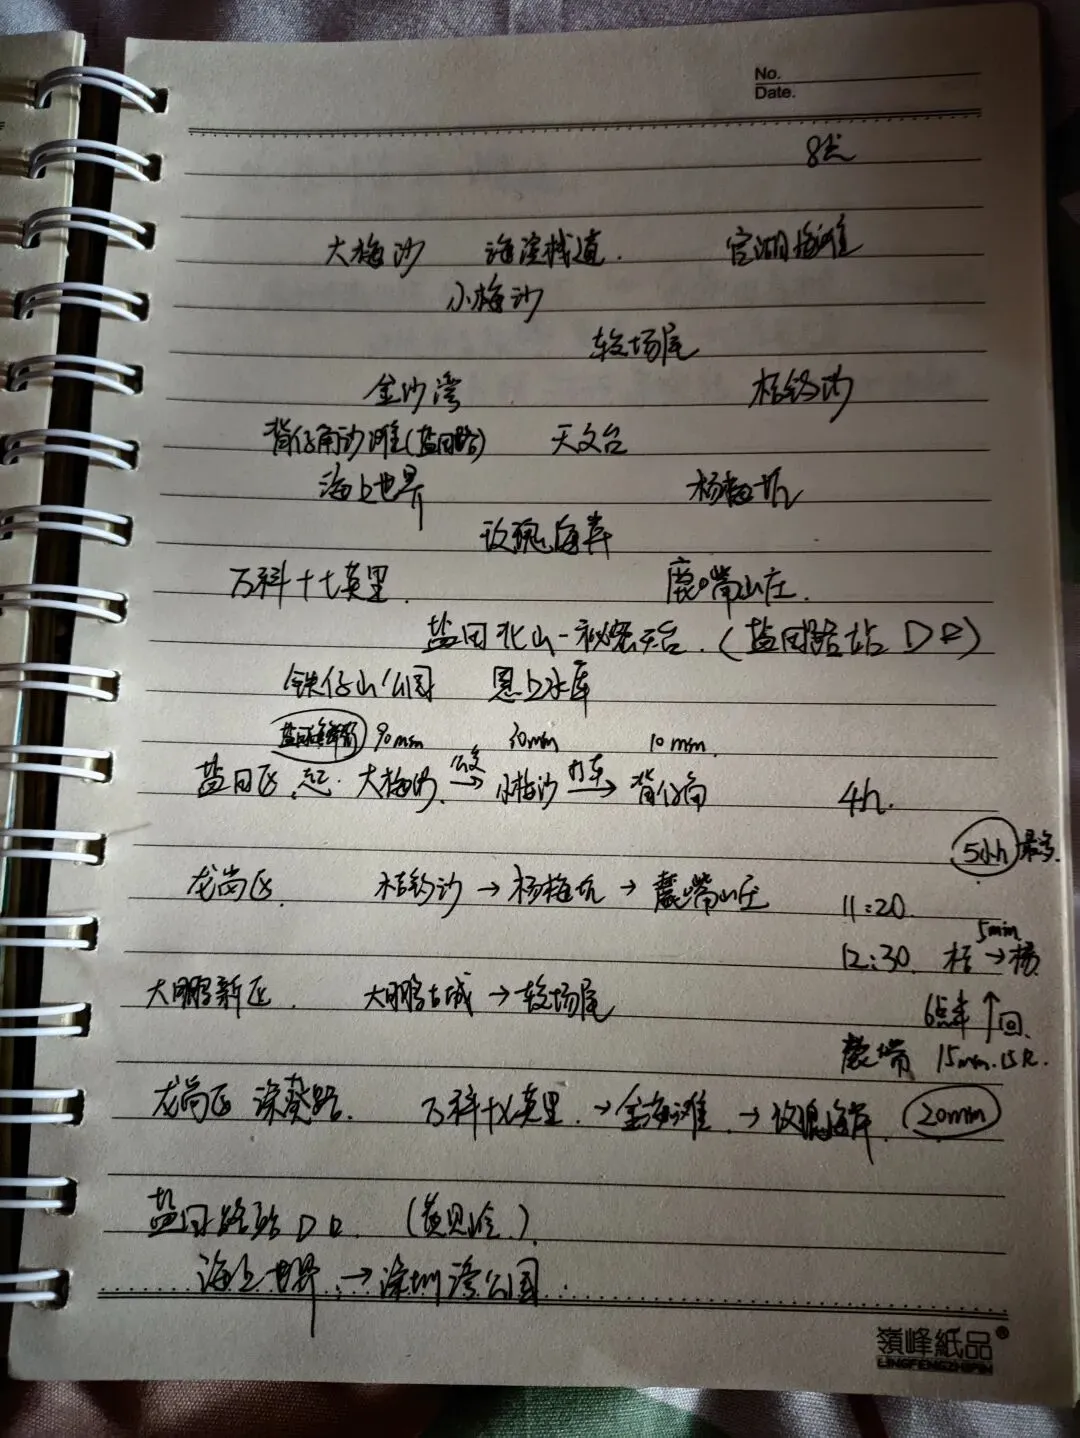 No.
Date.
8点
大梅沙 海滨栈道. 官湖海滩
小梅沙
较场尾
金沙湾 桔钓沙
背仔角沙滩(盐田路) 天文台
海上世界 杨梅坑
玫瑰海岸
万科十七英里. 鹿嘴山庄.
盐田北山-秘密天台.(盐田路站D口)
铁仔山公园 恩上水库
盐田海鲜街 90min 30min 10min.
盐田区. 大梅沙 公交→ 小梅沙 打车→ 背仔角 4h.
5小h 最多.
龙岗区. 桔钓沙→杨梅坑→鹿嘴山庄 11:20.
12:30. 桔 5min→ 杨.
大鹏新区. 大鹏古城→较场尾
6点半 ↑回.
鹿嘴 15min.15R.
龙岗区 深葵路. 万科十七英里.→金海滩.→玫瑰海岸. 20min
盐田路站D口.
海上世界.→深圳湾公园.
嶺峰紙品®
LINGFENGZHIPIN